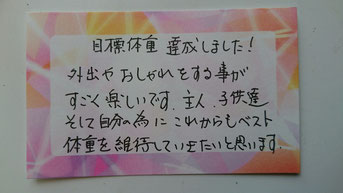 目標体重 達成しました!
外出や おしゃれをする事が
すごく楽しいです。主人、子供達
そして自分の為に これからもベスト
体重を維持していきたいと思います。